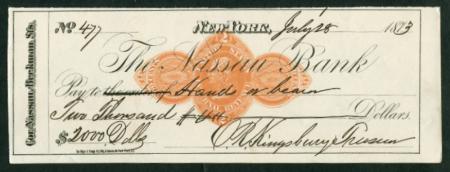 Cor. Nassau & Beekman Sts.
No 477 New-York, July 28 1873
The Nassau Bank
Pay to the order of Hand or bearer
Two Thousand Dollars.
$2000 Dolls O R Kingsbury Treasurer